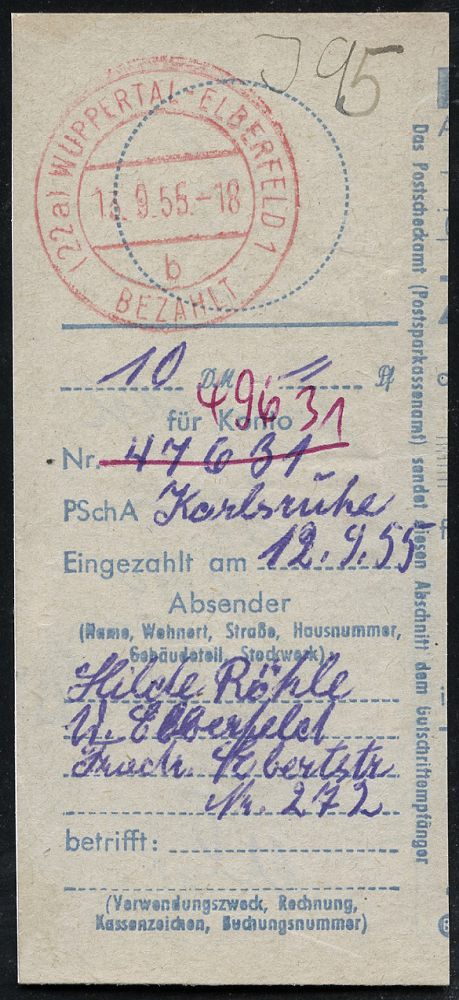 J 95
(22a) WUPPERTAL-ELBERFELD 1
12. 9. 55.-18
b
BEZAHLT
10 DM = Pf
49631
für Konto
Nr. 47631
PSchA Karlsruhe
Eingezahlt am 12.9.55
Absender
(Name, Wohnort, Straße, Hausnummer,
Gebäudeteil, Stockwerk)
Hilde Röhle
W. Elberfeld
Friedr. Ebertstr
Nr. 272
betrifft:
(Verwendungszweck, Rechnung,
Kassenzeichen, Buchungsnummer)
Das Postscheckamt (Postsparkassenamt) sendet diesen Abschnitt dem Gutschriftempfänger